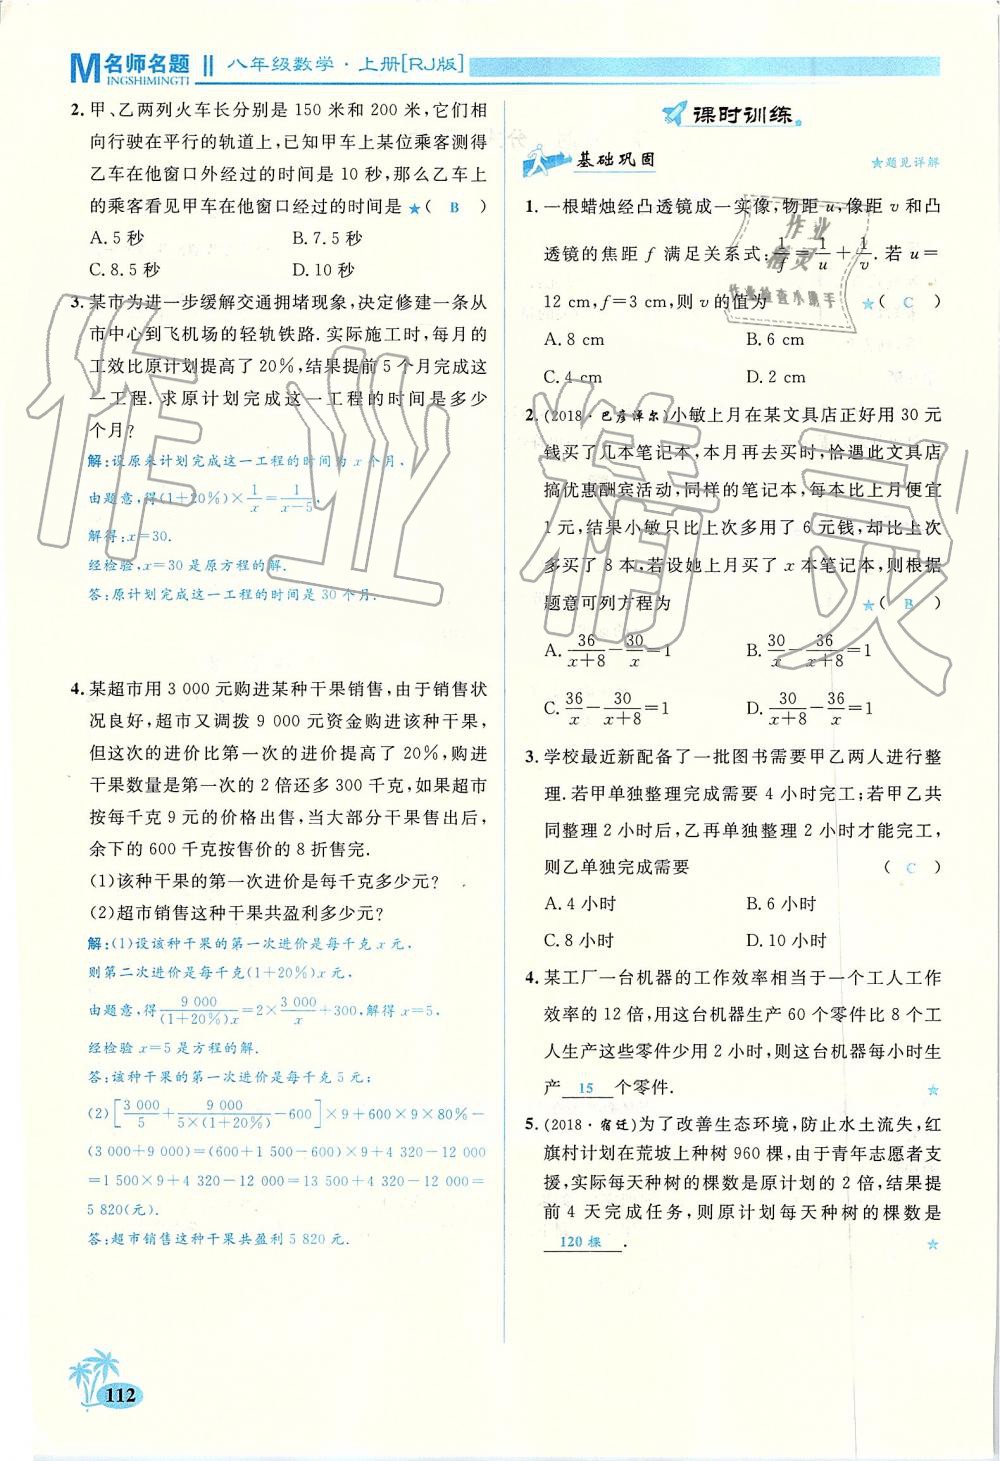 M名师名题
INGSHIMINGTI
八年级数学·上册[RJ版]
2. 甲、乙两列火车长分别是 150 米和 200 米,它们相
向行驶在平行的轨道上,已知甲车上某位乘客测得
乙车在他窗口外经过的时间是 10 秒,那么乙车上
的乘客看见甲车在他窗口经过的时间是 ★( B )
A. 5 秒 B. 7.5 秒
C. 8.5 秒 D. 10 秒
3. 某市为进一步缓解交通拥堵现象,决定修建一条从
市中心到飞机场的轻轨铁路. 实际施工时,每月的
工效比原计划提高了 20%,结果提前 5 个月完成这
一工程. 求原计划完成这一工程的时间是多少
个月?
解:设原来计划完成这一工程的时间为 x 个月,
由题意,得(1+20%)×1/x=1/(x-5).
解得:x=30.
经检验,x=30 是原方程的解.
答:原计划完成这一工程的时间是 30 个月.
4. 某超市用 3 000 元购进某种干果销售,由于销售状
况良好,超市又调拨 9 000 元资金购进该种干果,
但这次的进价比第一次的进价提高了 20%,购进
干果数量是第一次的 2 倍还多 300 千克,如果超市
按每千克 9 元的价格出售,当大部分干果售出后,
余下的 600 千克按售价的 8 折售完.
(1)该种干果的第一次进价是每千克多少元?
(2)超市销售这种干果共盈利多少元?
解:(1)设该种干果的第一次进价是每千克 x 元,
则第二次进价是每千克(1+20%)x 元,
由题意,得 9 000/((1+20%)x)=2×3 000/x+300,解得 x=5,
经检验 x=5 是方程的解.
答:该种干果的第一次进价是每千克 5 元;
(2)[3 000/5+9 000/(5×(1+20%))-600]×9+600×9×80%-
(3 000+9 000)=(600+1 500-600)×9+4 320-12 000
=1 500×9+4 320-12 000=13 500+4 320-12 000=
5 820(元).
答:超市销售这种干果共盈利 5 820 元.
112
课时训练
基础巩固 ★题见详解
1. 一根蜡烛经凸透镜成一实像,物距 u,像距 v 和凸
透镜的焦距 f 满足关系式:1/f=1/u+1/v. 若 u=
12 cm,f=3 cm,则 v 的值为 ★( C )
A. 8 cm B. 6 cm
C. 4 cm D. 2 cm
2. (2018·巴彦淖尔)小敏上月在某文具店正好用 30 元
钱买了几本笔记本,本月再去买时,恰遇此文具店
搞优惠酬宾活动,同样的笔记本,每本比上月便宜
1 元,结果小敏只比上次多用了 6 元钱,却比上次
多买了 8 本.若设她上月买了 x 本笔记本,则根据
题意可列方程为 ★( B )
A. 36/(x+8)-30/x=1 B. 30/x-36/(x+8)=1
C. 36/x-30/(x+8)=1 D. 30/(x+8)-36/x=1
3. 学校最近新配备了一批图书需要甲乙两人进行整
理.若甲单独整理完成需要 4 小时完工;若甲乙共
同整理 2 小时后,乙再单独整理 2 小时才能完工,
则乙单独完成需要 ( C )
A. 4 小时 B. 6 小时
C. 8 小时 D. 10 小时
4. 某工厂一台机器的工作效率相当于一个工人工作
效率的 12 倍,用这台机器生产 60 个零件比 8 个工
人生产这些零件少用 2 小时,则这台机器每小时生
产 15 个零件. ★
5. (2018·宿迁)为了改善生态环境,防止水土流失,红
旗村计划在荒坡上种树 960 棵,由于青年志愿者支
援,实际每天种树的棵数是原计划的 2 倍,结果提
前 4 天完成任务,则原计划每天种树的棵数是
120 棵 . ★
作业精灵
作业
精灵
作业检查小助手